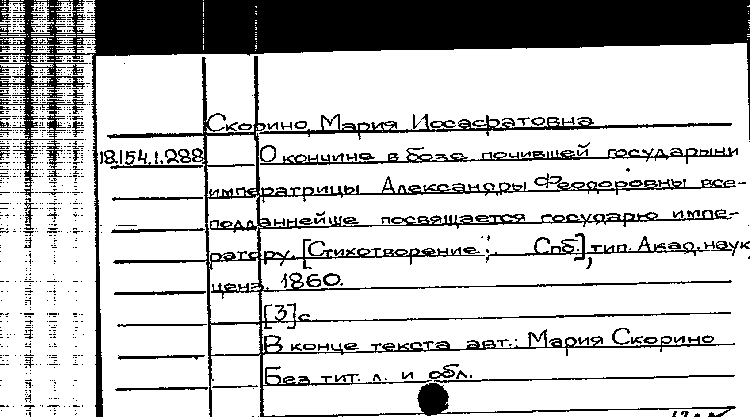 Скорино, Мария Иосафатовна
18.154.1.288 О кончине в бозе почившей государыни
императрицы Александры Феодоровны все-
подданнейше посвящается государю импе-
ратору. [Стихотворение]. Спб.], тип. Акад. наук,
ценз. 1860.
[3]с
В конце текста авт.: Мария Скорино
Без тит. л. и обл.